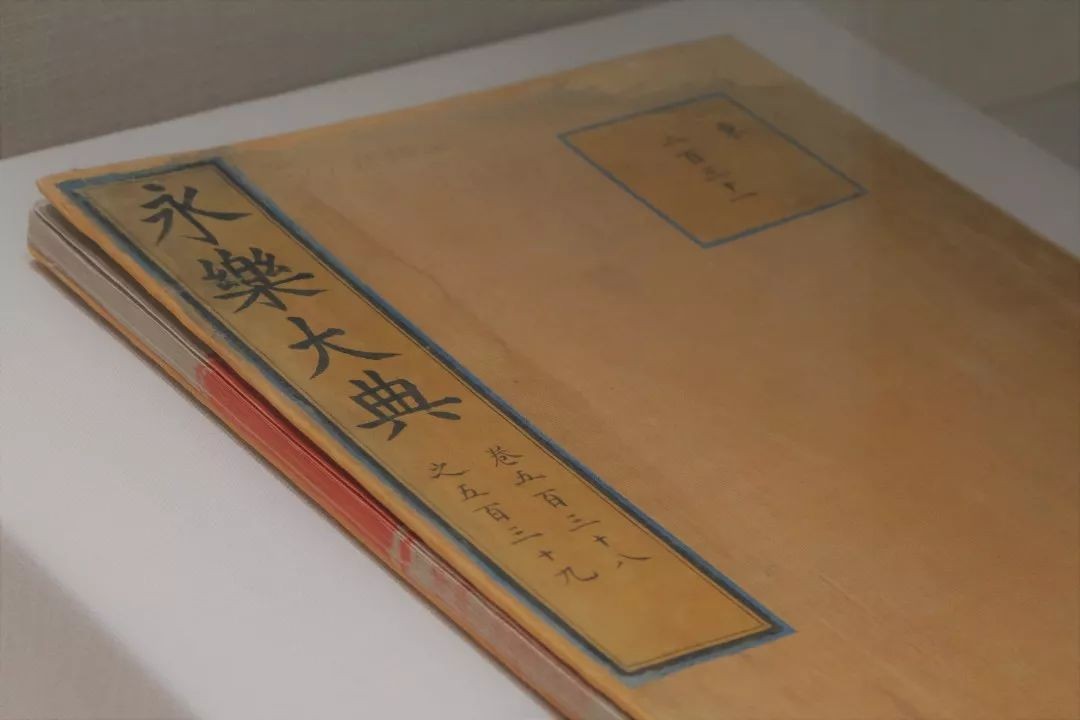 永樂大典
卷五百三十八
之五百三十九